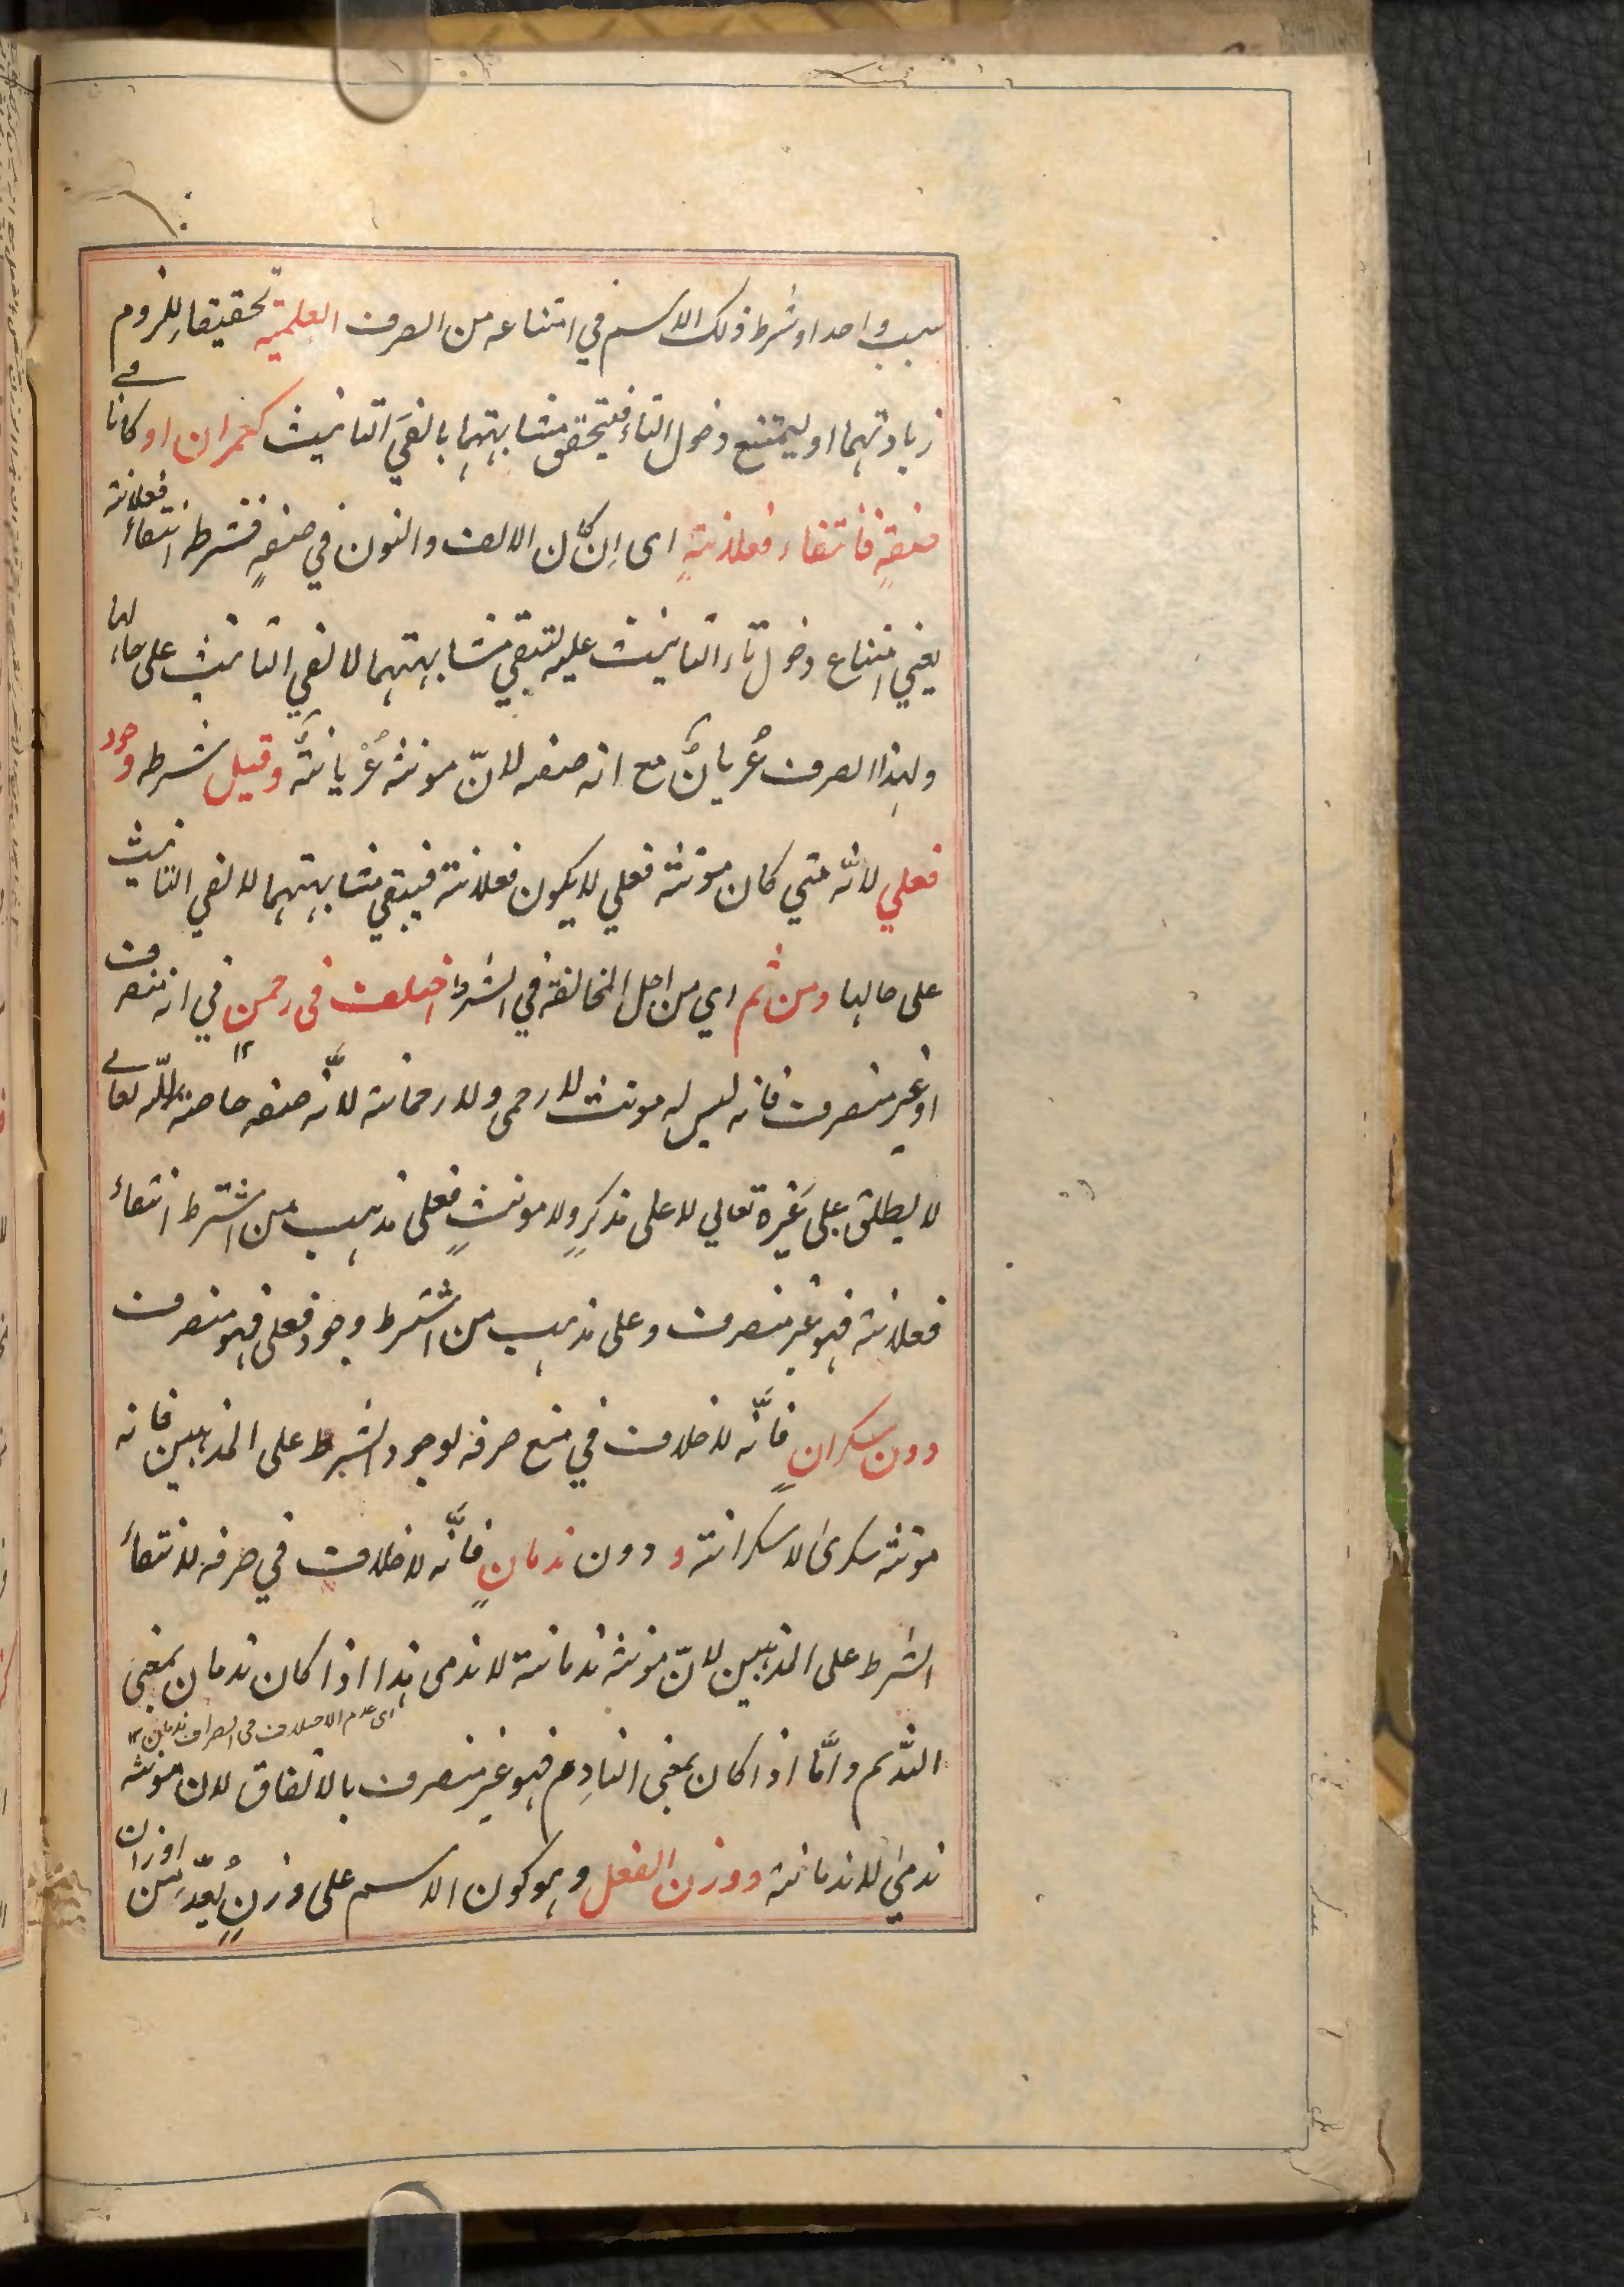 سبب واحد او شرط ذلك الاسم في امتناعه من الصرف العلمية تحقيقا للزوم
زيادتهما او ليمتنع دخول التاء فيتحقق مشابهتهما بالفَي التانيث كعمران او كانا في
صفةٍ فانتفاء فعلانةٍ اى اِن كان الالف والنون في صفةٍ فشرطه انتفاءُ فعلانة
يعني امتناع دخول تاء التانيث عليه لتبقي مشابهتهما لالفي التانيث على حالها
ولهذا انصرف عُريانٌ مع انه صفة لانّ مونثه عُرْيانةٌ وقيل شرطه وجود
فعلي لانّه متي كان مؤنثه فعلي لا يكون فعلانة فيبقي مشابهتهما لالفي التانيث
على حالها ومن ثم اي من اجل المخالفة في الشرط اختلف فى رحمن في انه منصرف
او غير منصرف فانه ليس له مونث لا رحمى ولا رحمانة لانّه صفة خاصة لله تعالى
لا يطلق على غيره تعالي لا على مذكرٍ ولا مونثٍ فعلى مذهب من اشترط انتفاء
فعلانة فهو غير منصرف وعلى مذهب من اشترط وجود فعلى فهو منصرف
دون سكرانٍ فانّه لا خلاف في منع صرفه لوجود الشرط على المذهبين فانه
مؤنثه سكرىٰ لا سكرانة و دون ندمانٍ فانّه لا خلاف في صرفه لانتفاء
الشرط على المذهبين لانّ مؤنثه ندمانة لا ندمى هذا اذا كان ندمان بمعنى
اى عدم الاختلاف فى انصراف ندمان ١٢
النَّديم وامَّا اذا كان بمعنى النادِم فهو غير منصرف بالاتفاق لان مؤنثه
ندمىٰ لا ندمانة ووزن الفعل وهو كون الاسم على وزنٍ يُعدّ من اوزان